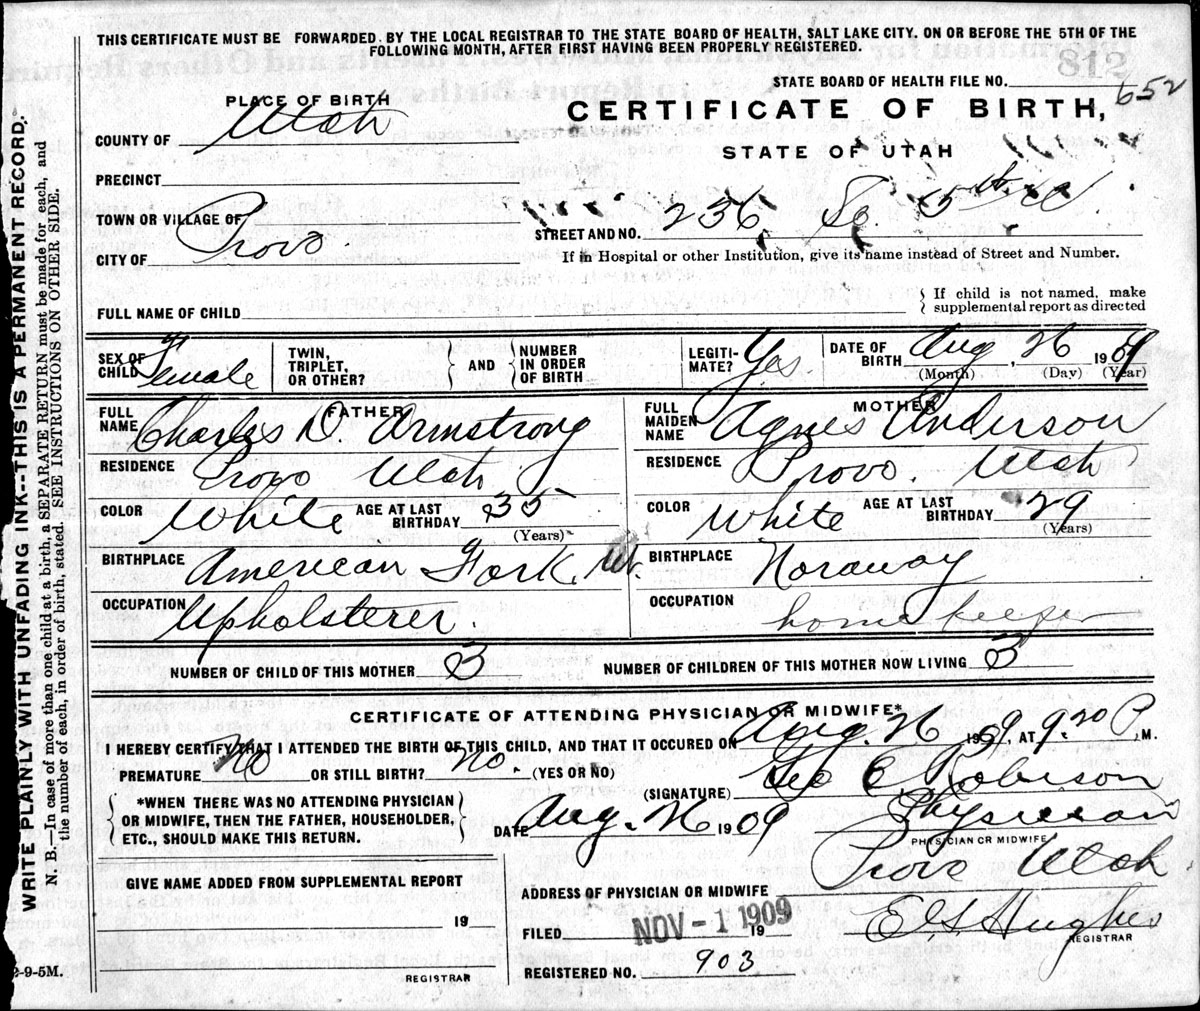 THIS CERTIFICATE MUST BE FORWARDED BY THE LOCAL REGISTRAR TO THE STATE BOARD OF HEALTH, SALT LAKE CITY. ON OR BEFORE THE 5TH OF THE
FOLLOWING MONTH, AFTER FIRST HAVING BEEN PROPERLY REGISTERED.
812
STATE BOARD OF HEALTH FILE NO. 652
PLACE OF BIRTH
CERTIFICATE OF BIRTH,
COUNTY OF Utah
STATE OF UTAH
PRECINCT
TOWN OR VILLAGE OF
STREET AND NO. 236 So. 5th W.
CITY OF Provo.
If in Hospital or other Institution, give its name instead of Street and Number.
FULL NAME OF CHILD
If child is not named, make
supplemental report as directed
SEX OF CHILD Female
TWIN, TRIPLET, OR OTHER?
AND
NUMBER IN ORDER OF BIRTH
LEGITI-MATE? Yes.
DATE OF BIRTH Aug, 26 1909
(Month) (Day) (Year)
FATHER
FULL NAME Charles D. Armstrong
MOTHER
FULL MAIDEN NAME Agnes Anderson
RESIDENCE Provo Utah.
RESIDENCE Provo. Utah
COLOR White AGE AT LAST BIRTHDAY 35 (Years)
COLOR White AGE AT LAST BIRTHDAY 29 (Years)
BIRTHPLACE American Fork, Ut.
BIRTHPLACE Noraway
OCCUPATION Upholsterer.
OCCUPATION home keeper
NUMBER OF CHILD OF THIS MOTHER 3
NUMBER OF CHILDREN OF THIS MOTHER NOW LIVING 3
CERTIFICATE OF ATTENDING PHYSICIAN OR MIDWIFE*
I HEREBY CERTIFY THAT I ATTENDED THE BIRTH OF THIS CHILD, AND THAT IT OCCURED ON Aug. 26 1909, AT 9.20 P, M.
PREMATURE No OR STILL BIRTH? No. (YES OR NO)
(SIGNATURE) Geo E Robison
*WHEN THERE WAS NO ATTENDING PHYSICIAN
OR MIDWIFE, THEN THE FATHER, HOUSEHOLDER,
ETC., SHOULD MAKE THIS RETURN.
DATE Aug. 26 1909
Physician
PHYSICIAN OR MIDWIFE
Provo Utah
GIVE NAME ADDED FROM SUPPLEMENTAL REPORT
19
REGISTRAR
ADDRESS OF PHYSICIAN OR MIDWIFE
FILED NOV - 1 1909 19
E G Hughes
REGISTRAR
REGISTERED NO. 903
WRITE PLAINLY WITH UNFADING INK--THIS IS A PERMANENT RECORD.
N. B.—In case of more than one child at a birth, a SEPARATE RETURN must be made for each, and
the number of each, in order of birth, stated. SEE INSTRUCTIONS ON OTHER SIDE.
2-9-5M.